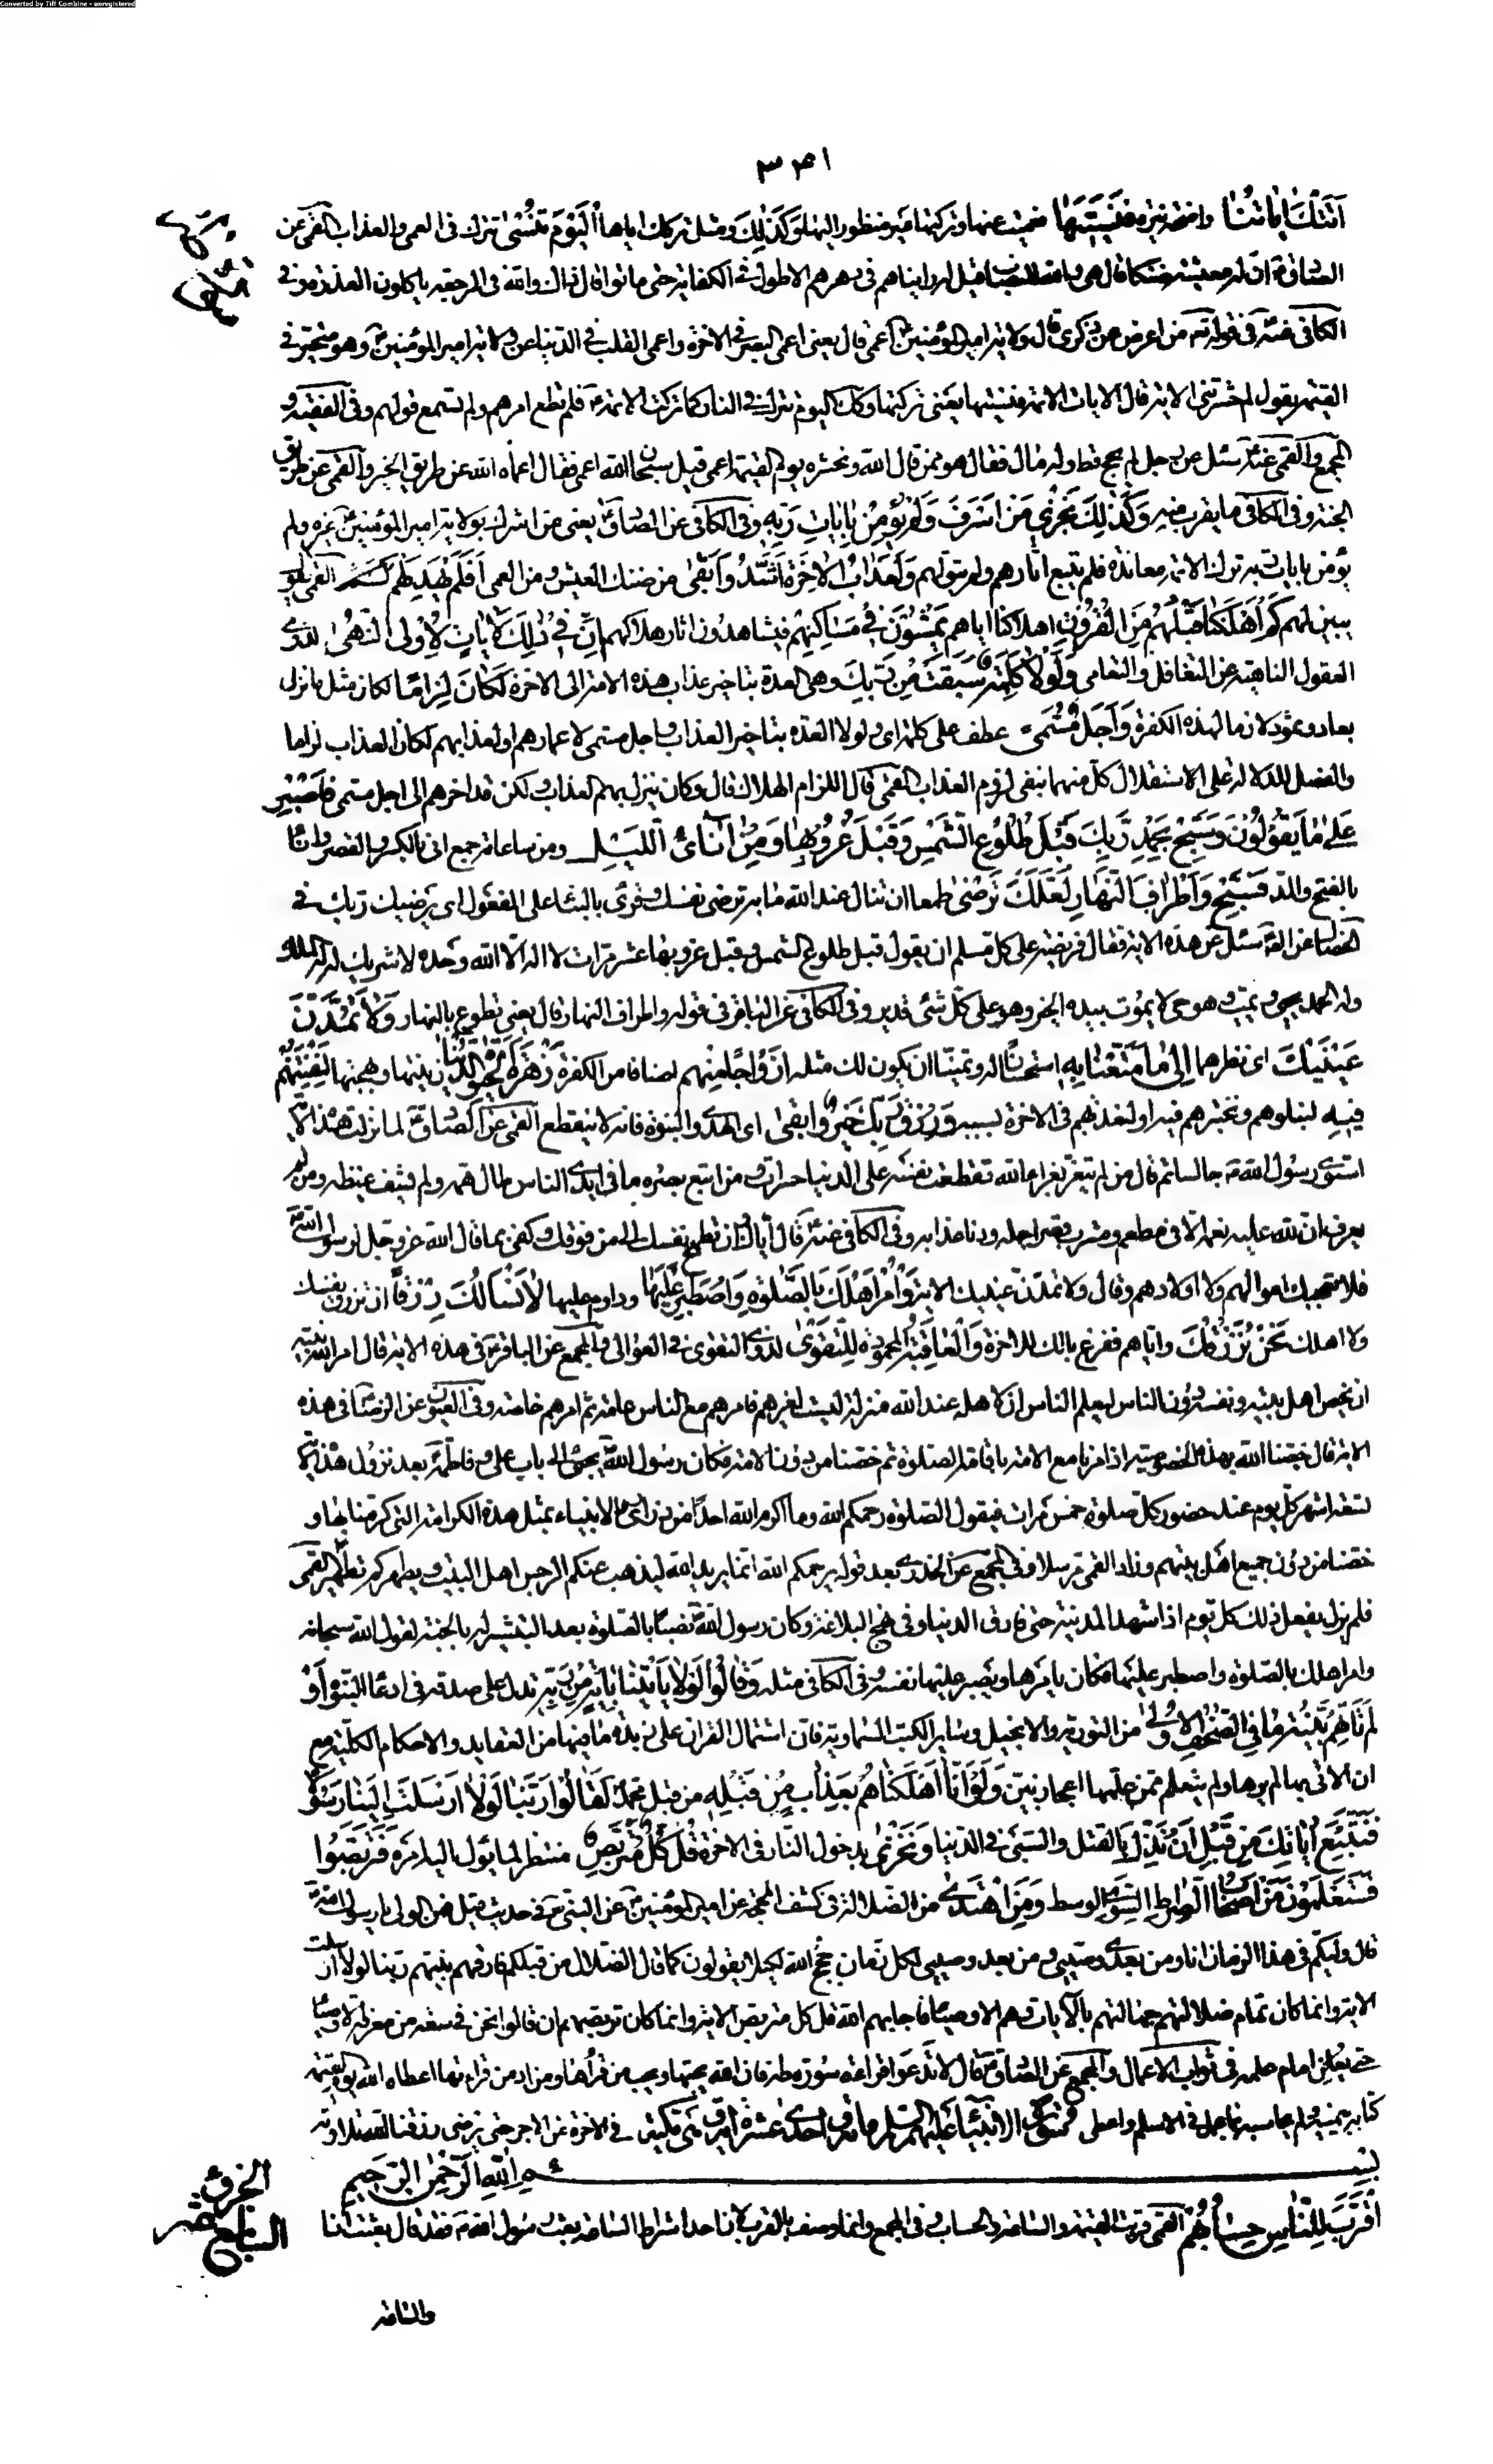 Converted by Tiff Combine - unregistered
٣٤١
اتتك اياتنا واضحة نيرة فنسيتها فعميت عنها وتركتها غير منظور اليها وكذلك ومثل تركك اياها اليوم تنسى تترك فى العمى والعذاب القمى عن
الصادق ان له معيشة ضنكا قال هى والله للنصاب قيل له رايناهم فى دهرهم الاطول فى الكفاية حتى ماتوا قال ذلك والله فى الرجعة ياكلون العذرة وفى
الكافى عنه فى قوله تعه من اعرض عن ذكرى قال ولاية امير المؤمنين اعمى قال يعنى اعمى البصر فى الاخرة واعمى القلب فى الدنيا عن ولاية امير المؤمنين وهو متحير فى
القيمة يقول لم حشرتنى الاية قال الايات الائمة فنسيتها يعنى تركتها وكك اليوم تترك فى النار كما تركت الائمة فلم تطع امرهم ولم تسمع قولهم وفى الفقيه و
المجمع والقمى عنه سئل عن رجل لم يحج قط وله مال فقال هو ممن قال الله ونحشره يوم القيمة اعمى قيل سبحان الله اعمى فقال اعماه الله عن طريق الخير والقمى عن طريق
الجنة وفى الكافى ما يقرب منه وكذلك نجزى من اسرف ولم يؤمن بايات ربه وفى الكافى عن الصادق يعنى من اشرك بولاية امير المؤمنين غيره ولم
يؤمن بايات ربه ترك الائمة معاندة فلم يتبع اثارهم ولم يتولهم ولعذاب الاخرة اشد وابقى من ضنك العيش ومن العمى افلم يهد لهم القمى يقول
يبين لهم كم اهلكنا قبلهم من القرون اهلاكنا اياهم يمشون فى مساكنهم فيشاهدون اثار هلاكهم ان فى ذلك لايات لاولى النهى لذوى
العقول الناهية عن التغافل والتعامى ولولا كلمة سبقت من ربك وهى العدة بتاخير عذاب هذه الامة الى الاخرة لكان لزاما لكان مثل ما نزل
بعاد وثمود لازما لهذه الكفرة واجل مسمى عطف على كلمة اى ولولا العدة بتاخير العذاب واجل مسمى لاعمارهم او لعذابهم لكان العذاب لزاما
والفصل للدلالة على الاستقلال كل منهما بنفى لزوم العذاب القمى قال اللزام الهلاك قال وكان ينزل بهم العذاب ولكن قد اخرهم الى اجل مسمى فاصبر
على ما يقولون وسبح بحمد ربك قبل طلوع الشمس وقبل غروبها ومن اناء الليل ومن ساعاته جمع انى بالكسر والقصر وانا
بالفتح والمد فسبح واطراف النهار لعلك ترضى طمعا ان تنال عند الله ما به ترضى نفسك وقرئ بالبناء على المفعول اى يرضيك ربك فى
الخصال عن الصادق سئل عن هذه الاية فقال فريضة على كل مسلم ان يقول قبل طلوع الشمس وقبل غروبها عشر مرات لا اله الا الله وحده لا شريك له له الملك
وله الحمد يحيى ويميت وهو حى لا يموت بيده الخير وهو على كل شئ قدير وفى الكافى عن الباقر فى قوله واطراف النهار قال يعنى تطوع بالنهار ولا تمدن
عينيك اى نظرهما الى ما متعنا به استحسانا له وتمنيا ان يكون لك مثله ازواجا منهم اصنافا من الكفرة زهرة الحيوة الدنيا زينتها وبهجتها لنفتنهم
فيه لنبلوهم ونختبرهم فيه او لنعذبهم فى الاخرة بسببه ورزق ربك خير وابقى اى الهدى والنبوة فانه لا ينقطع القمى عن الصادق لما نزلت هذه الاية
استوى رسول الله جالسا ثم قال من لم يتعز بعزاء الله تقطعت نفسه على الدنيا حسرات ومن اتبع بصره ما فى ايدى الناس طال همه ولم يشف غيظه ومن لم
يعرف ان لله عليه نعمة الا فى مطعم ومشرب قصر اجله ودنا عذابه وفى الكافى عنه قال اياك وان تطمح نفسك الى من فوقك وكفى بما قال الله عز وجل لرسول الله
فلا تعجبك اموالهم ولا اولادهم وقال ولا تمدن عينيك الاية وامر اهلك بالصلوة واصطبر عليها وداوم عليها لا نسالك رزقا ان ترزق نفسك
ولا اهلك نحن نرزقك واياهم ففرغ بالك للاخرة والعاقبة المحمودة للتقوى لذوى التقوى فى العوالى والمجمع عن الباقر فى هذه الاية قال امر الله نبيه
ان يخص اهل بيته ونفسه دون الناس ليعلم الناس ان لاهله عند الله منزلة ليست لغيرهم فامرهم مع الناس عامة ثم امرهم خاصة وفى العيون عن الرضا فى هذه
الاية قال خصنا الله بهذه الخصوصية اذ امرنا مع الامة باقامة الصلوة ثم خصنا من دون الامة فكان رسول الله يجئ الى باب على وفاطمة بعد نزول هذه الاية
لتسعة اشهر كل يوم عند حضور كل صلوة خمس مرات فيقول الصلوة رحمكم الله وما اكرم الله احدا من ذرارى الانبياء بمثل هذه الكرامة التى كرمنا بها و
خصنا من دون جميع اهل بيتهم وزاد القمى مرسلا وفى المجمع عن الخدرى بعد قوله يرحمكم الله انما يريد الله ليذهب عنكم الرجس اهل البيت ويطهركم تطهيرا القمى
فلم يزل يفعل ذلك كل يوم اذا شهد المدينة حتى فارق الدنيا وفى نهج البلاغة وكان رسول الله نصبا بالصلوة بعد التبشير له بالجنة لقول الله سبحانه
وامر اهلك بالصلوة واصطبر عليها فكان يامرها ويصبر عليها نفسه وفى الكافى مثله وقالوا لولا ياتينا باية من ربه تدل على صدقه فى ادعاء النبوة او
لم تاتهم بينة ما فى الصحف الاولى من التورية والانجيل وساير الكتب السماوية فان اشتمال القران على زبدة ما فيها من العقايد والاحكام الكلية مع
ان الاتى بها لم يرها ولم يتعلم ممن علمها اعجاز بين ولو انا اهلكناهم بعذاب من قبله من قبل محمد لقالوا ربنا لولا ارسلت الينا رسولا
فنتبع اياتك من قبل ان نذل بالقتل والسبى فى الدنيا ونخزى بدخول النار فى الاخرة قل كل متربص منتظر لما يؤل اليه امره فتربصوا
فستعلمون من اصحاب الصراط السوى الوسط ومن اهتدى من الضلالة فى كشف المحجة عن امير المؤمنين عن النبى فى حديث قيل فمن الولى يا رسول الله
قال وليكم فى هذا الزمان انا ومن بعدى وصيى ومن بعد وصيى لكل زمان حجج الله لكيلا يقولون كما قال الضلال من قبلكم فارقهم نبيهم ربنا لولا ارسلت
الاية وانما كان تمام ضلالتهم جهالتهم بالايات وهم الاوصياء فاجابهم الله قل كل متربص الاية وانما كان تربصهم ان قالوا نحن فى سعة من معرفة الاوصياء
حتى يعلن امام علمه فى ثواب الاعمال والمجمع عن الصادق قال لا تدعوا قراءة سورة طه فان الله يحبها ويحب من قراها ومن ادمن قراءتها اعطاه الله يوم القيمة
كتابه بيمينه ولم يحاسبه بما عمل فى الاسلم واعطى فى الاخرة من الاجر حتى يرضى رزقنا الله تلاوته
بسم الله الرحمن الرحيم
اقترب للناس حسابهم القمى قربت القيمة والساعة والحساب وفى المجمع وانما وصف بالقرب لان احد اشراط الساعة بعث رسول الله فقد قال بعثت انا
الجزء
السابع عشر
والساعة